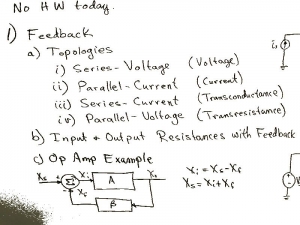 No HW today.
1) Feedback
a) Topologies
i) Series-Voltage (Voltage)
ii) Parallel-Current (Current)
iii) Series-Current (Transconductance)
iv) Parallel-Voltage (Transresistance)
b) Input & Output Resistances with Feedback
c) Op Amp Example
Xs + Σ Xi A Xo
- Xf β
Xi = Xs - Xf
Xs = Xi + Xf